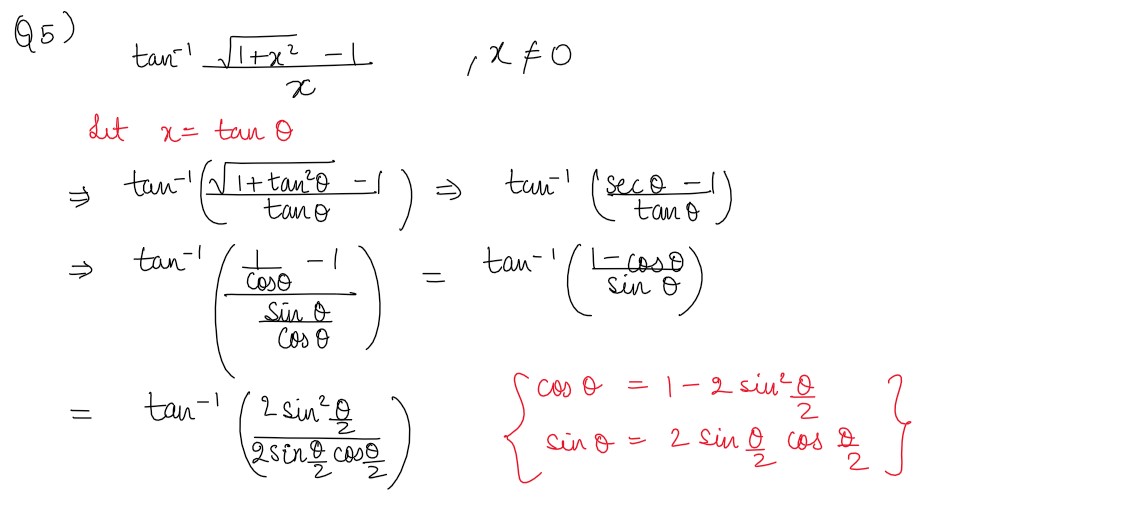 Q5)
tan⁻¹ (√(1+x²) − 1)/x , x ≠ 0
Let x = tan θ
⇒ tan⁻¹((√(1+tan²θ) − 1)/tanθ) ⇒ tan⁻¹((secθ − 1)/tanθ)
⇒ tan⁻¹((1/cosθ − 1)/(sin θ/cos θ)) = tan⁻¹((1−cosθ)/sin θ)
= tan⁻¹((2 sin² θ/2)/(2 sin θ/2 cos θ/2)) { cos θ = 1 − 2 sin² θ/2
sin θ = 2 sin θ/2 cos θ/2 }